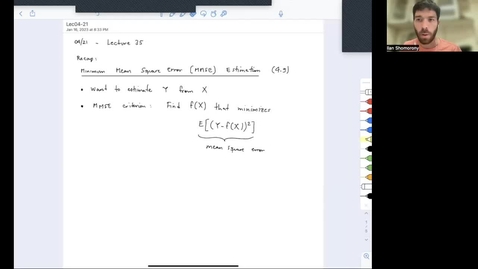 Lec04-21
Jan 16, 2023 at 8:53 PM
04/21 - Lecture 35
Recap:
Minimum Mean Square error (MMSE) Estimation (4.9)
• Want to estimate Y from X
• MMSE criterion: Find f(X) that minimizes
E[(Y-f(X))²]
mean square error
Ilan Shomorony